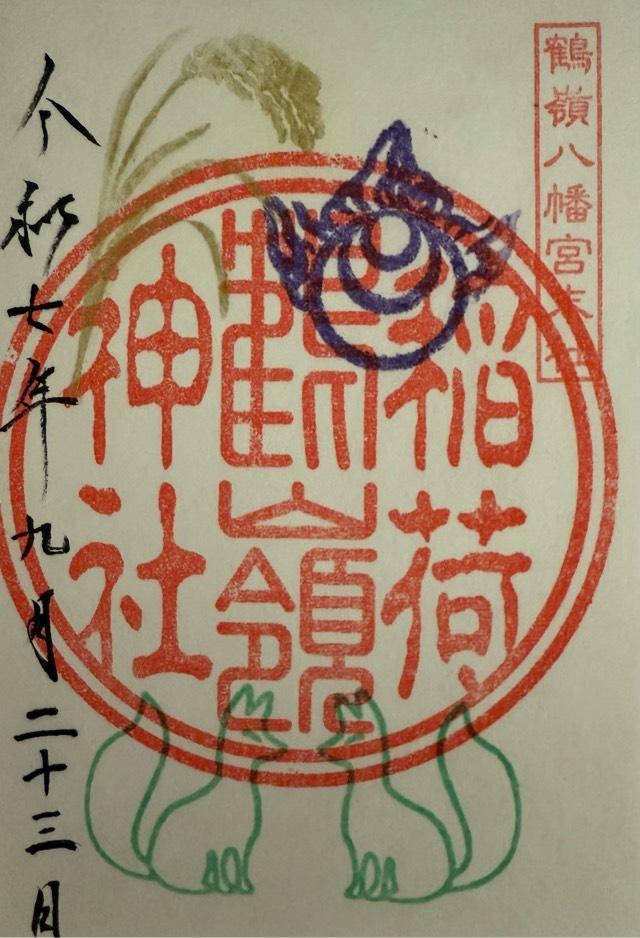 鶴嶺八幡宮末社
稲荷
鶴嶺
神社
令和七年九月二十三日